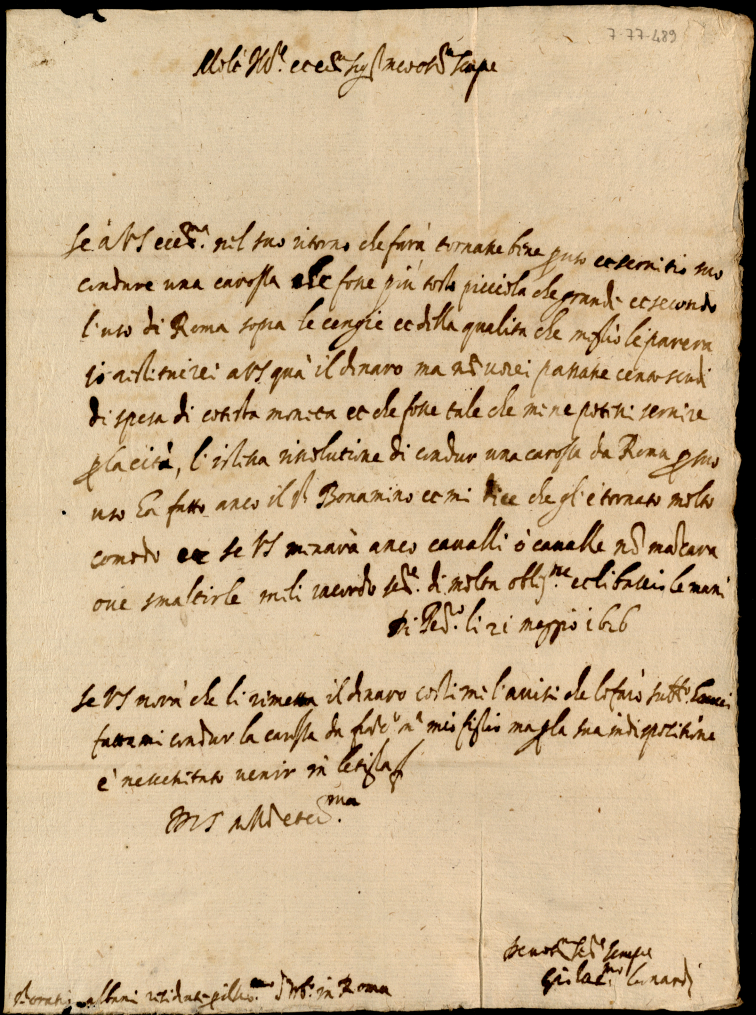 7-77-489
Molt Ill.re et ecc.mo sig.r mio oss.mo sempre
Se à VS ecc.ma nel suo ritorno che farà tornasse bene p uso et servitio suo
condure una carossa che fosse più tosto picciola che grande et secondo
l'uso di Roma sopra le cengie et della qualità che meglio le parerà
io restituirei a VS quà il dinaro ma nõ vorei passasse cento scudi
di spesa di cotesta moneta et che fosse tale che me ne potessi servire
p la città, l'istessa rissolutione di condur una carossa da Roma p suo
uso ha fatto anco il S.r Bonamino et mi dice che gli è tornato molto
comodo et se VS menarà anco cavalli ò cavalle nõ mãcara
ove smaltirle me li racordo se.re di molta oblig.ne et li baccio le mani
Di Pes.o li 21 maggio 1626
Se VS vorà che li rimetta il dinaro costì me l'avisi che lo farò subb.o haverei
fattami condur la carossa da mio figlio ma p la sua indispositione
è necessitato venir in letiga
D VS molt Ill.re et ecc.ma
Devot.mo se.re sempre
Leonardi
S.r Oratio Albani residente p il ser.mo d'Urb.o in Roma